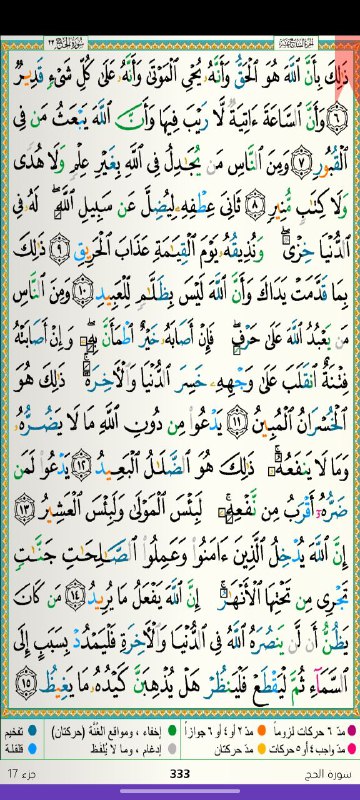 سُورَةُ الحَجِّ ٢٢
الجُزْءُ السَّابِعَ عَشَرَ
ذَٰلِكَ بِأَنَّ ٱللَّهَ هُوَ ٱلْحَقُّ وَأَنَّهُۥ يُحْىِ ٱلْمَوْتَىٰ وَأَنَّهُۥ عَلَىٰ كُلِّ شَىْءٍ قَدِيرٌ
﴿٦﴾ وَأَنَّ ٱلسَّاعَةَ ءَاتِيَةٌ لَّا رَيْبَ فِيهَا وَأَنَّ ٱللَّهَ يَبْعَثُ مَن فِى
ٱلْقُبُورِ ﴿٧﴾ وَمِنَ ٱلنَّاسِ مَن يُجَٰدِلُ فِى ٱللَّهِ بِغَيْرِ عِلْمٍ وَلَا هُدًى
وَلَا كِتَٰبٍ مُّنِيرٍ ﴿٨﴾ ثَانِىَ عِطْفِهِۦ لِيُضِلَّ عَن سَبِيلِ ٱللَّهِ ۖ لَهُۥ فِى
ٱلدُّنْيَا خِزْىٌ ۖ وَنُذِيقُهُۥ يَوْمَ ٱلْقِيَٰمَةِ عَذَابَ ٱلْحَرِيقِ ﴿٩﴾ ذَٰلِكَ
بِمَا قَدَّمَتْ يَدَاكَ وَأَنَّ ٱللَّهَ لَيْسَ بِظَلَّٰمٍ لِّلْعَبِيدِ ﴿١٠﴾ وَمِنَ ٱلنَّاسِ
مَن يَعْبُدُ ٱللَّهَ عَلَىٰ حَرْفٍ ۖ فَإِنْ أَصَابَهُۥ خَيْرٌ ٱطْمَأَنَّ بِهِۦ ۖ وَإِنْ أَصَابَتْهُ
فِتْنَةٌ ٱنقَلَبَ عَلَىٰ وَجْهِهِۦ خَسِرَ ٱلدُّنْيَا وَٱلْءَاخِرَةَ ۚ ذَٰلِكَ هُوَ
ٱلْخُسْرَانُ ٱلْمُبِينُ ﴿١١﴾ يَدْعُوا۟ مِن دُونِ ٱللَّهِ مَا لَا يَضُرُّهُۥ
وَمَا لَا يَنفَعُهُۥ ۚ ذَٰلِكَ هُوَ ٱلضَّلَٰلُ ٱلْبَعِيدُ ﴿١٢﴾ يَدْعُوا۟ لَمَن
ضَرُّهُۥٓ أَقْرَبُ مِن نَّفْعِهِۦ ۚ لَبِئْسَ ٱلْمَوْلَىٰ وَلَبِئْسَ ٱلْعَشِيرُ ﴿١٣﴾
إِنَّ ٱللَّهَ يُدْخِلُ ٱلَّذِينَ ءَامَنُوا۟ وَعَمِلُوا۟ ٱلصَّٰلِحَٰتِ جَنَّٰتٍ
تَجْرِى مِن تَحْتِهَا ٱلْأَنْهَٰرُ ۚ إِنَّ ٱللَّهَ يَفْعَلُ مَا يُرِيدُ ﴿١٤﴾ مَن كَانَ
يَظُنُّ أَن لَّن يَنصُرَهُ ٱللَّهُ فِى ٱلدُّنْيَا وَٱلْءَاخِرَةِ فَلْيَمْدُدْ بِسَبَبٍ إِلَى
ٱلسَّمَآءِ ثُمَّ لْيَقْطَعْ فَلْيَنظُرْ هَلْ يُذْهِبَنَّ كَيْدُهُۥ مَا يَغِيظُ ﴿١٥﴾
مدّ ٦ حركات لزوماً مدّ ٢ أو ٤ أو ٦ جوازاً إخفاء، ومواقع الغُنَّة (حركتان) تفخيم
مدّ واجب ٤ أو ٥ حركات مدّ حركتان إدغام، وما لا يُلفَظ قلقلة
سورة الحج 333 جزء 17